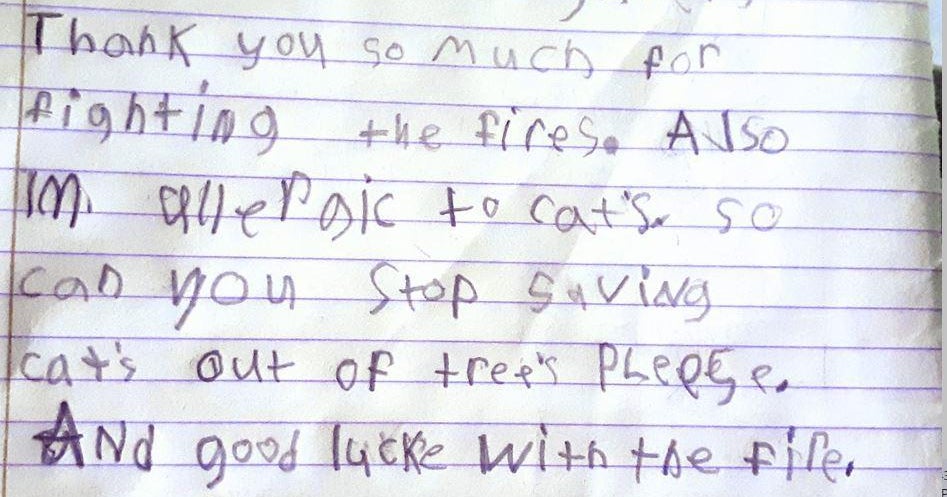 Thank you so much for
fighting the fires. Also
Im. allergic to cat's. so
can you stop saving
cat's out of tree's Please.
And good lucke with the fire.